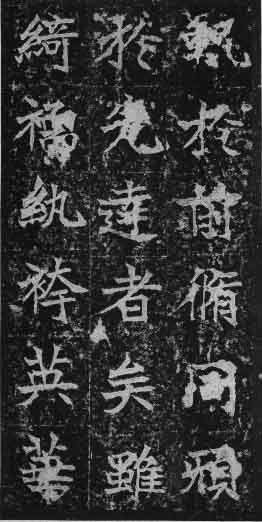 軌於前脩同規
於先達者矣雖
綺襦紈袴英華